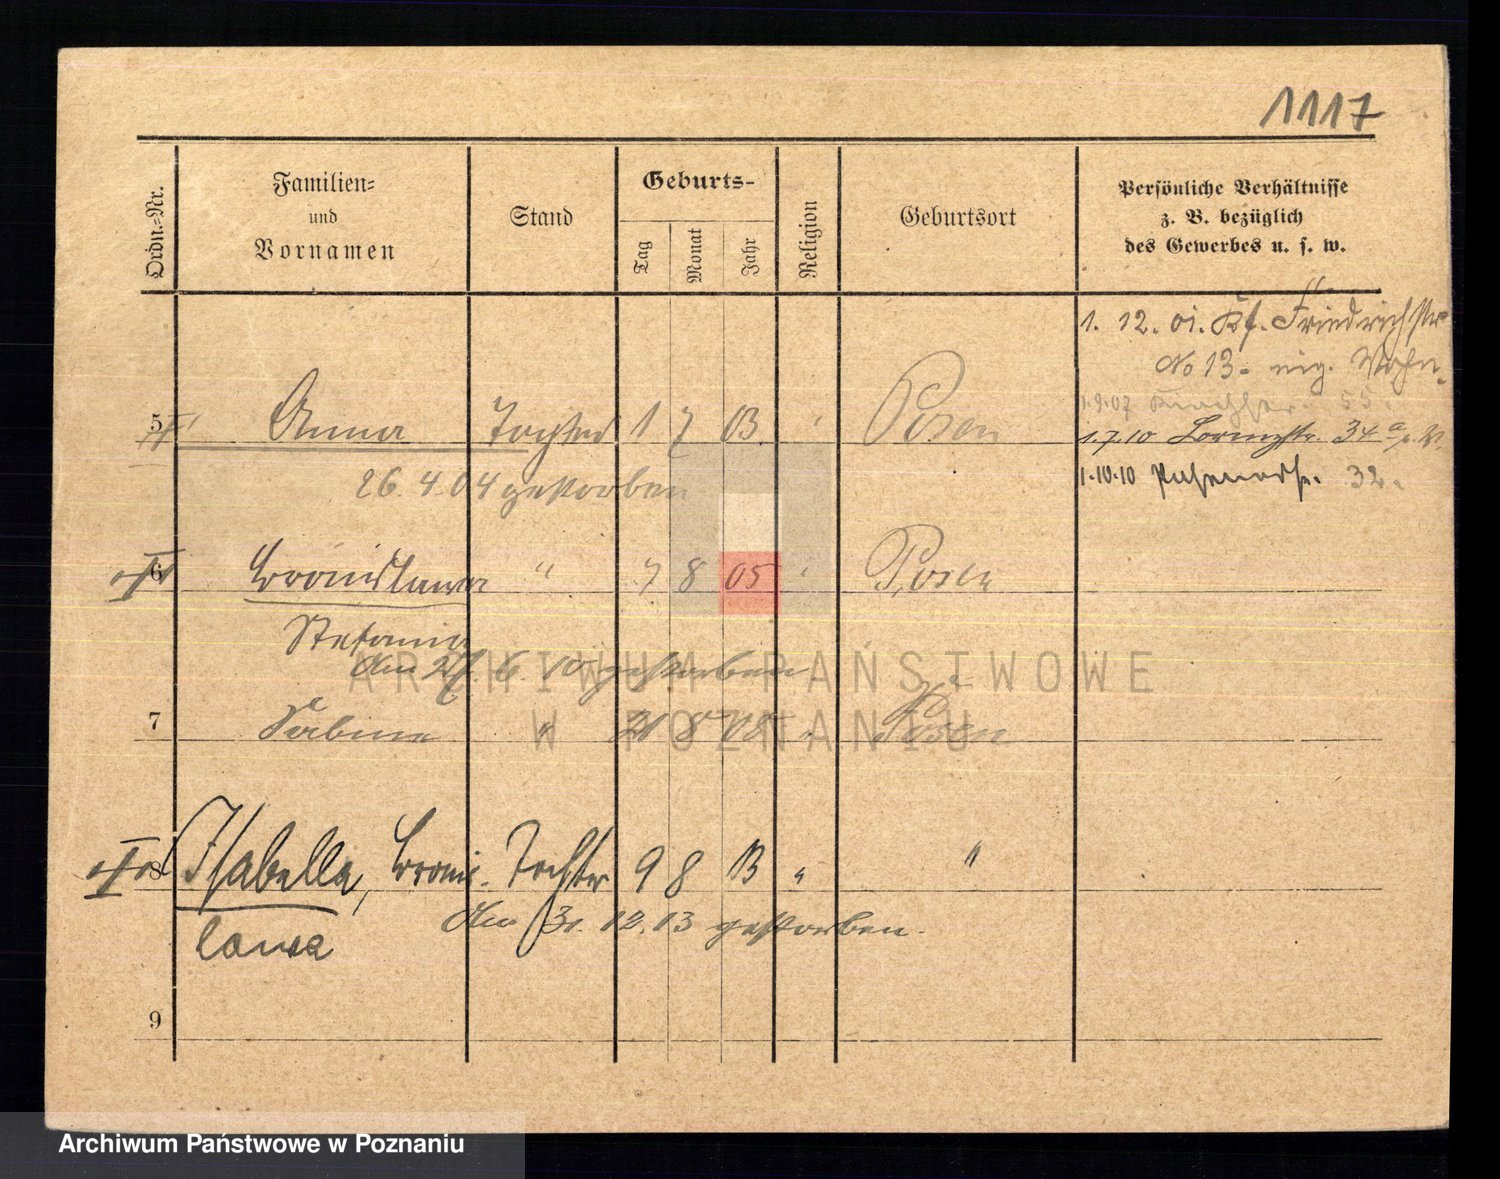 1117
Ordn.-Nr.
Familien-
und
Vornamen
Stand
Geburts-
Tag
Monat
Jahr
Religion
Geburtsort
Persönliche Verhältnisse
z. B. bezüglich
des Gewerbes u. s. w.
1. 12. 01. Friedrichstr
No 13. Wohn.
1.9.07 55
5 Anna Tochter 1 7 03 Posen
1.7.10 34a
26.4.04 gestorben
1.10.10 32.
6 Bronislawa " 7 8 05 Posen
Stefania
den 27. 6. 10 gestorben
ARCHIWUM PAŃSTWOWE
7 Sabina " 21 8 08 Posen
W POZNANIU
8 Isabella, Bronis- Tochter 9 8 13 " "
den 31. 12. 13 gestorben.
lawa
9
Archiwum Państwowe w Poznaniu